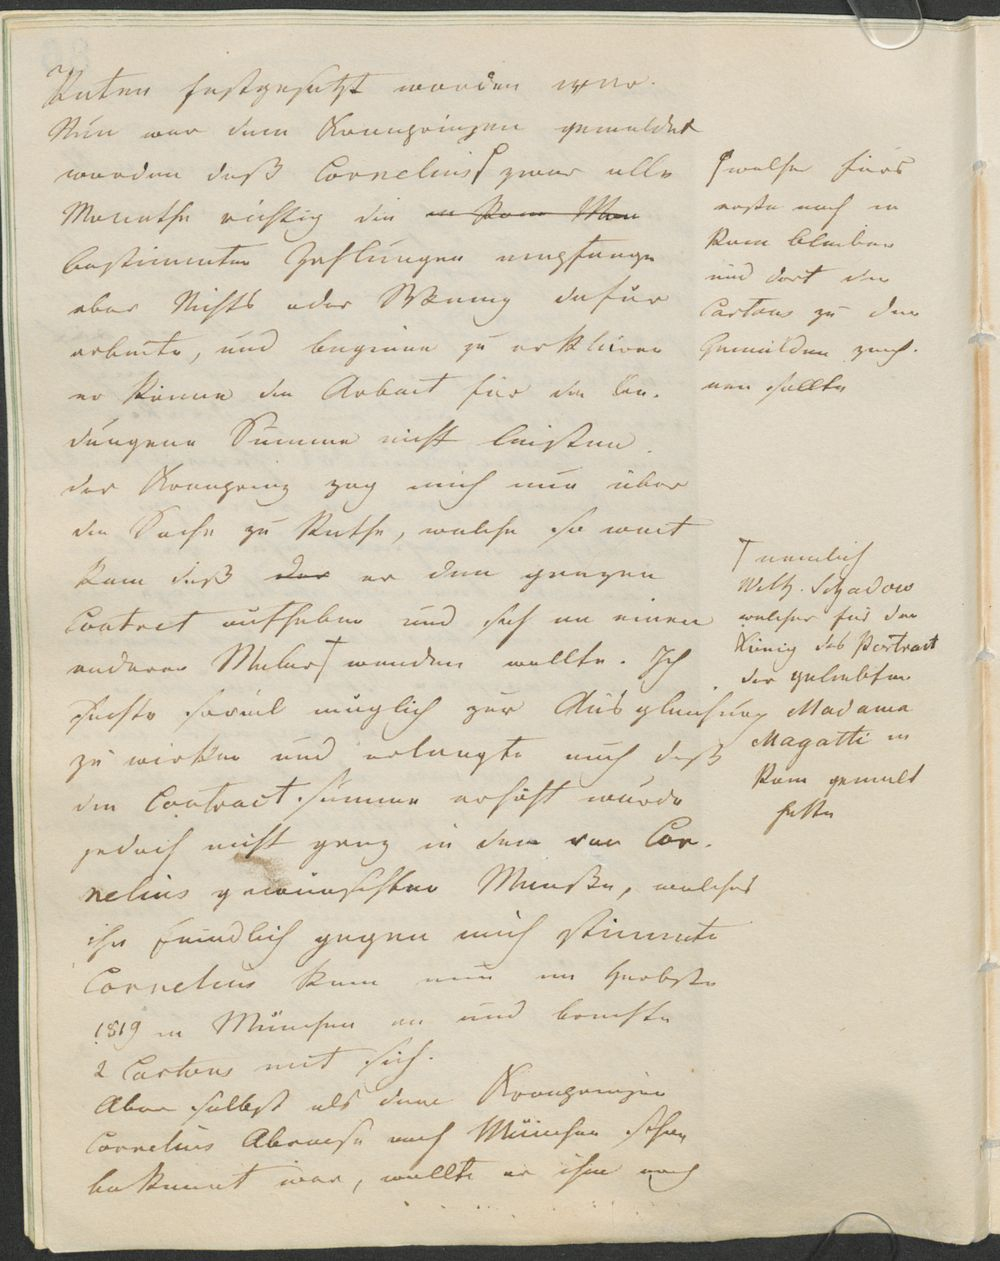 Raten festgesetzt worden war.
Nun war dem Kronprinzen gemeldet
worden daß Cornelius⌈ zwar alle
Monathe richtig die in Rom Mon
bestimmten Zahlungen empfange
aber Nichts oder Wenig dafür
arbeite, und beginne zu erklären
er könne die Arbeit für die be-
dungene Summe nicht leisten.
der Kronprinz zog mich nun über
die Sache zu Rathe, welche so weit
kam daß der er den ganzen
Contract aufheben und sich an einen
anderen Maler† wenden wollte. Ich
suchte soviel möglich zur Ausgleichung
zu wirken und erlangte auch daß
die Contract summe erhöht wurde
jedoch nicht ganz in dem von Cor-
nelius gewünschten Maaße, welches
ihn feindlich gegen mich stimmte
Cornelius kam nun im Herbste
1819 in München an und brachte
2 Cartons mit sich.
Aber selbst als dem Kronprinzen
Cornelius Abreise nach München schon
bekannt war, wollte er ihm noch
⌈welcher fürs
erste noch in
Rom bleiben
und dort die
Cartons zu den
Gemälden zeich-
nen sollte
† nemlich
Wilh. Schadow
welcher für den
König das Portrait
der geliebten
Madama
Magatti in
Rom gemalt
hatte